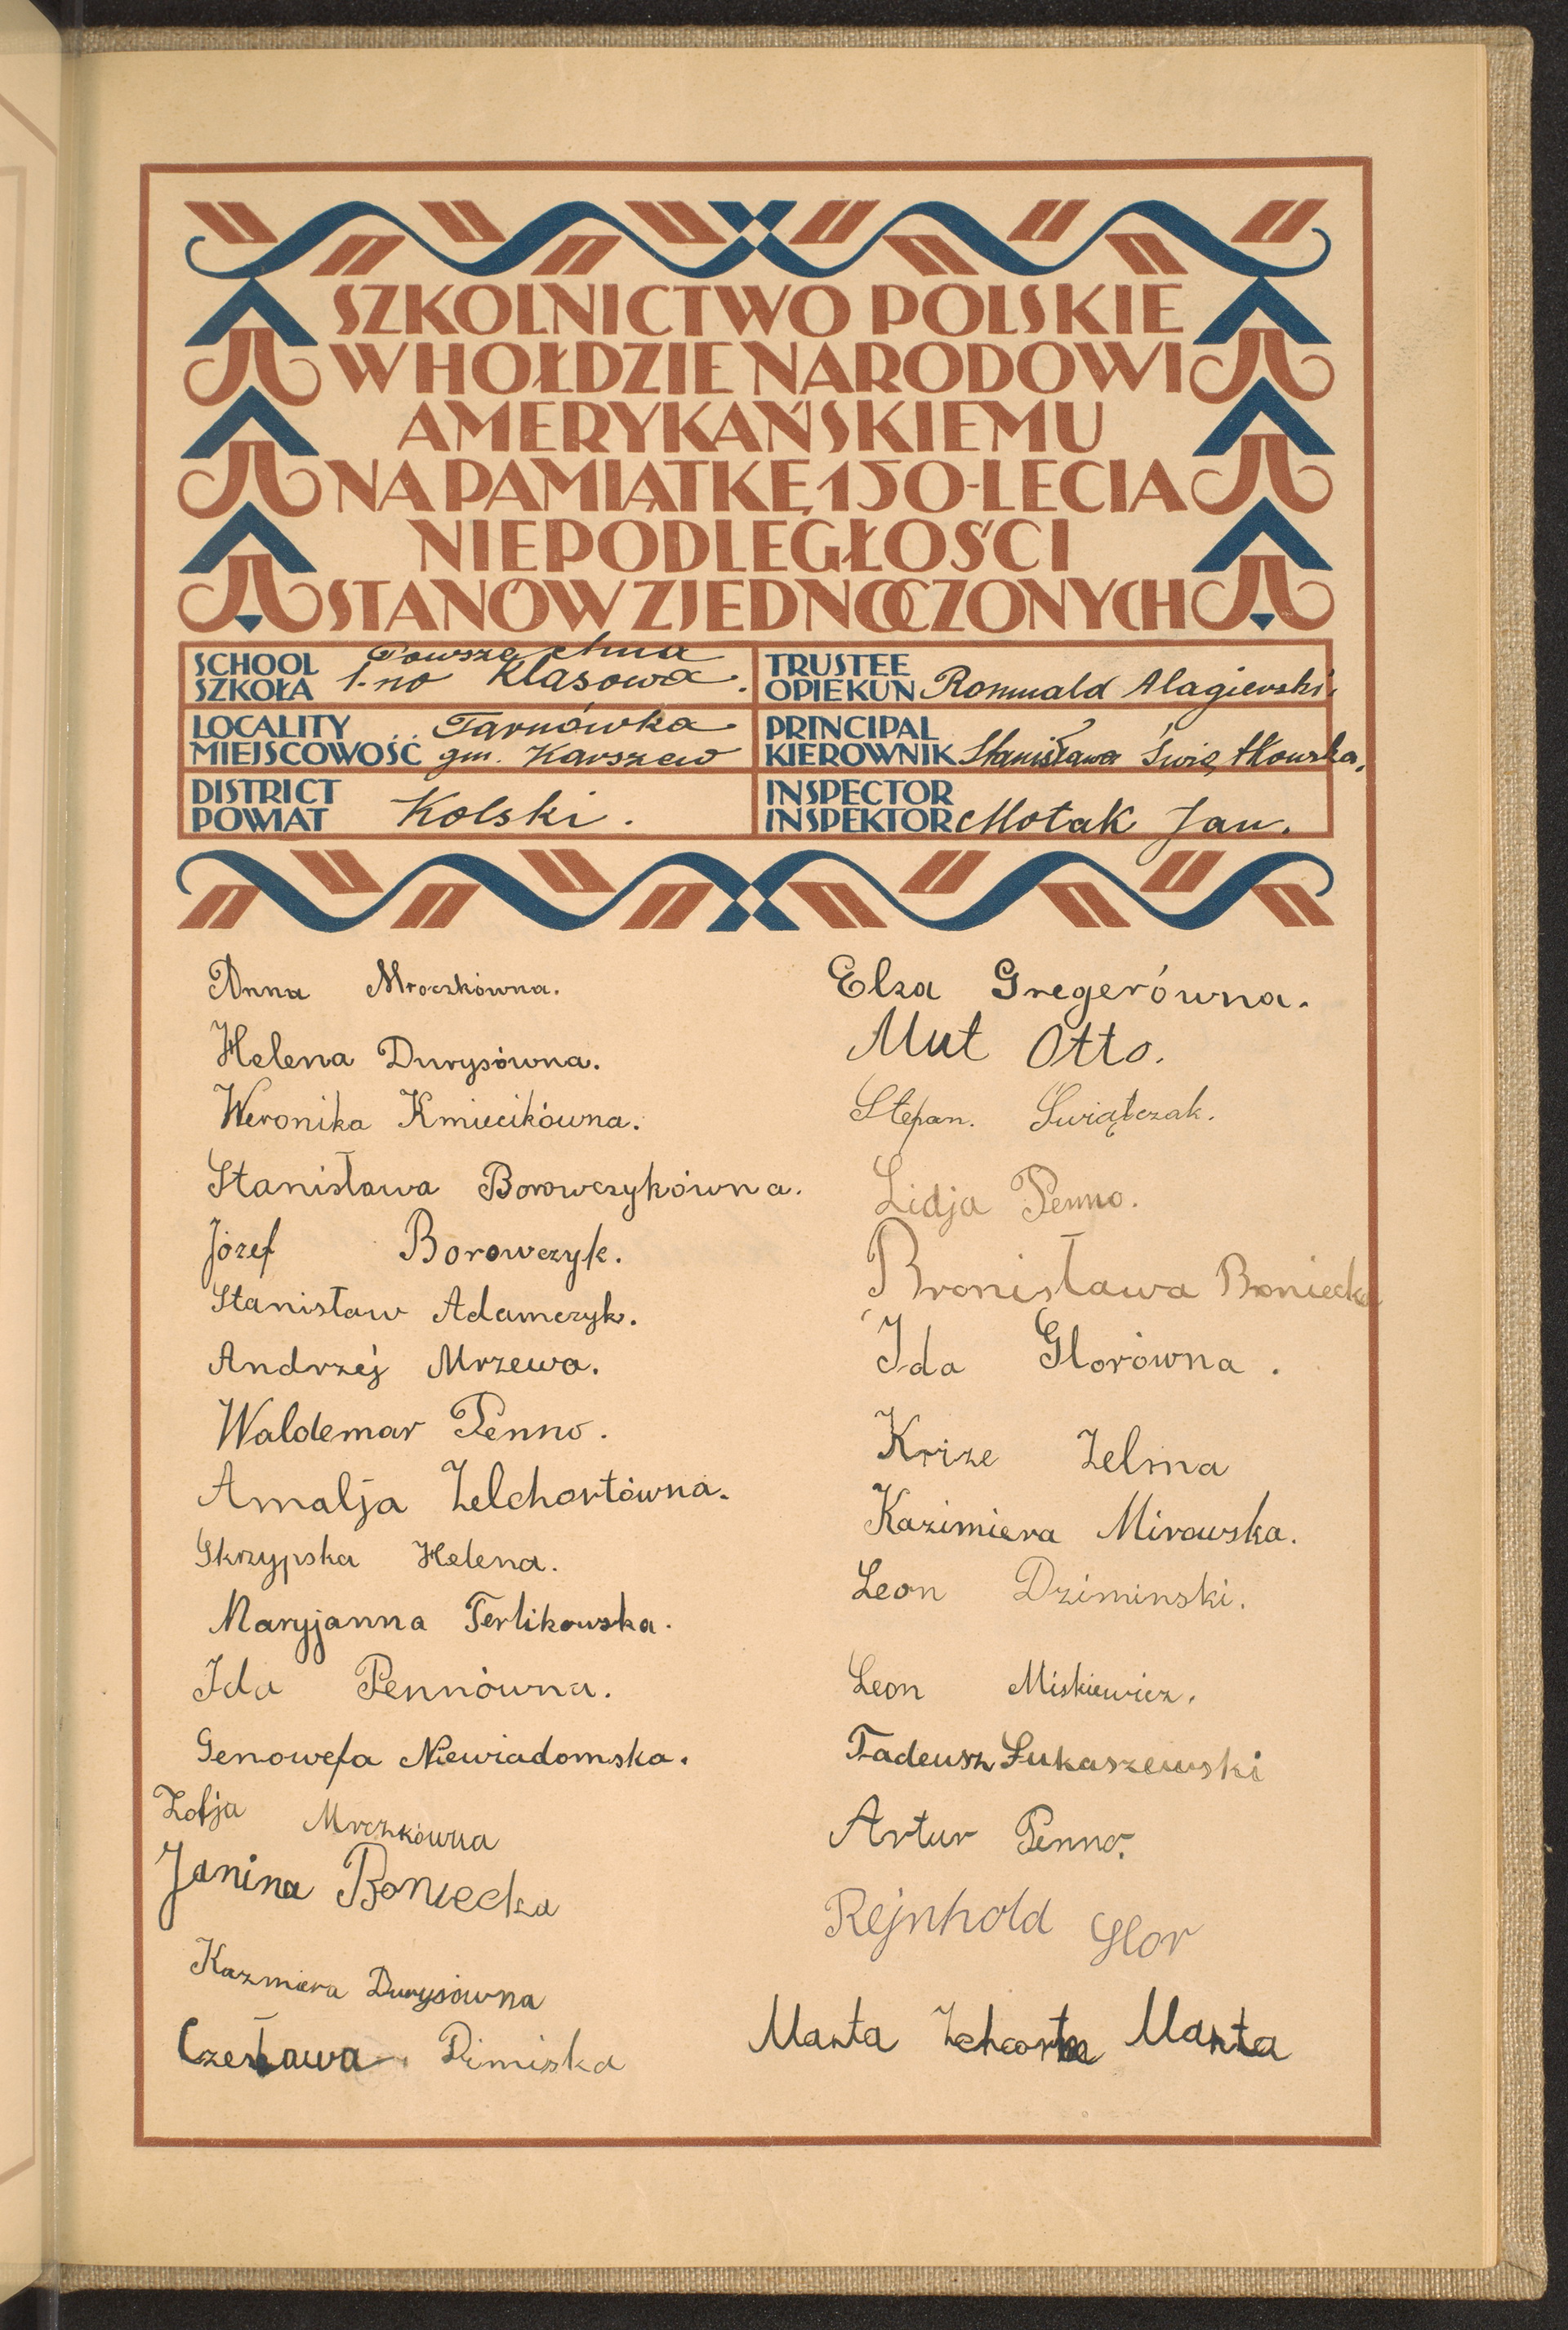 SZKOLNICTWO POLSKIE
W HOŁDZIE NARODOWI
AMERYKAŃSKIEMU
NA PAMIĄTKĘ 150-LECIA
NIEPODLEGŁOŚCI
STANÓW ZJEDNOCZONYCH
SCHOOL
SZKOŁA
Powszechna
1-no Klasowa.
TRUSTEE
OPIEKUN Romuald Alagierski.
LOCALITY
MIEJSCOWOŚĆ
Tarnówka
gm. Karszew
PRINCIPAL
KIEROWNIK Stanisława Świętkowska.
DISTRICT
POWIAT
Kolski.
INSPECTOR
INSPEKTOR Motak Jan.
Anna Mroczkówna.
Helena Durysówna.
Weronika Kmiecikówna.
Stanisława Borowczykówna.
Józef Borowczyk.
Stanisław Adamczyk.
Andrzéj Mrzewa.
Waldemar Penno.
Amalja Zelchortówna.
Skrzypska Helena.
Maryjanna Terlikowska.
Ida Pennówna.
Genowefa Niewiadomska.
Zofja Mrczkówna
Janina Boniecka
Kazmiera Durysówna
Czesława Dimiska
Elza Gregerówna.
Mut Otto.
Stepan. Świątczak.
Lidja Penno.
Bronisława Boniecka
Ida Glorówna.
Krize Zelma
Kazimiera Mirowska.
Leon Dziminski.
Leon Miskiewicz.
Tadeusz Łukaszewski
Artur Penno.
Rejnhold Glor
Marta Marta